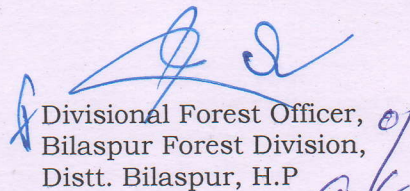 Divisional Forest Officer,
Bilaspur Forest Division,
Distt. Bilaspur, H.P